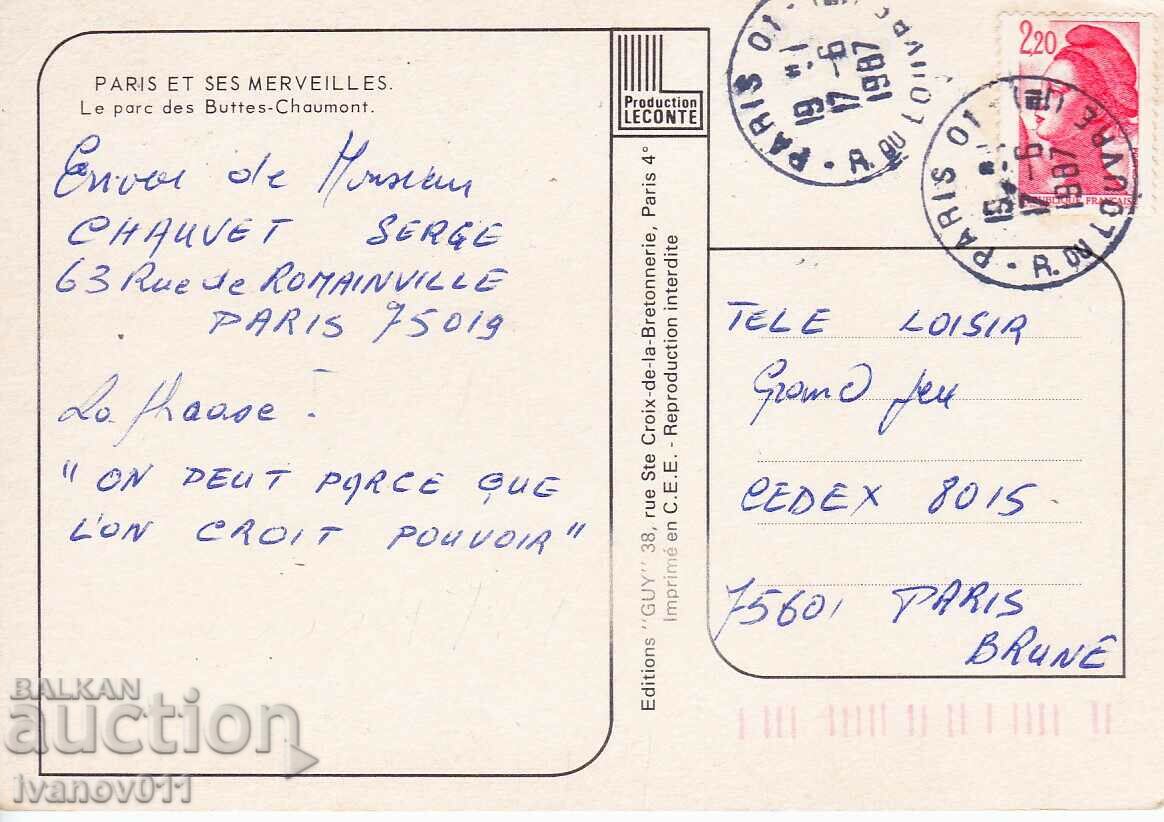 PARIS ET SES MERVEILLES.
Le parc des Buttes-Chaumont.
Envoi de Monsieur
CHAUVET SERGE
63 Rue de ROMAINVILLE
PARIS 75019
La Phrase :
"ON PEUT PARCE QUE
L'ON CROIT POUVOIR"
Production
LECONTE
Editions "GUY" 38, rue Ste Croix-de-la-Bretonnerie, Paris 4°
Imprimé en C.E.E. - Reproduction interdite
PARIS 01
19H
17-6
1987
R. DU LOUVRE
2,20
RÉPUBLIQUE FRANÇAISE
PARIS 01
15H
17-6
1987
R. DU LOUVRE (1er)
TELE LOISIR
Grand Jeu
CEDEX 8015
75601 PARIS
BRUNE
BALKAN
auction
ivanov011